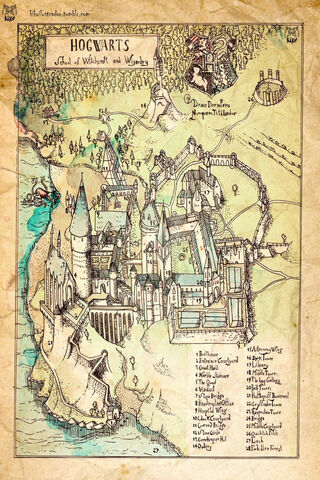 lihuiltrados.tumblr.com
HOGWARTS
School of Witchcraft and Wizardry
Draco Dormiens
Nunquam Titillandus
1 Boathouse
2 Entrance Courtyard
3 Great Hall
4 Marble Staircase
5 The Quad
6 Viaduct
8 Headmaster Office
9 Hospital Wing
11 Covered Bridge
12 Stone Circle
14 Owlery
15 Astronomy Wing
16 Dark Tower
17 Library
18 Middle Tower
20 Bell Tower
21 Hufflepuff Basement
22 Gryffindor Tower
23 Ravenclaw Tower
24 Bridge
25 Middle Courtyard
26 Quidditch Pitch
27 Loch
28 Forbidden Forest